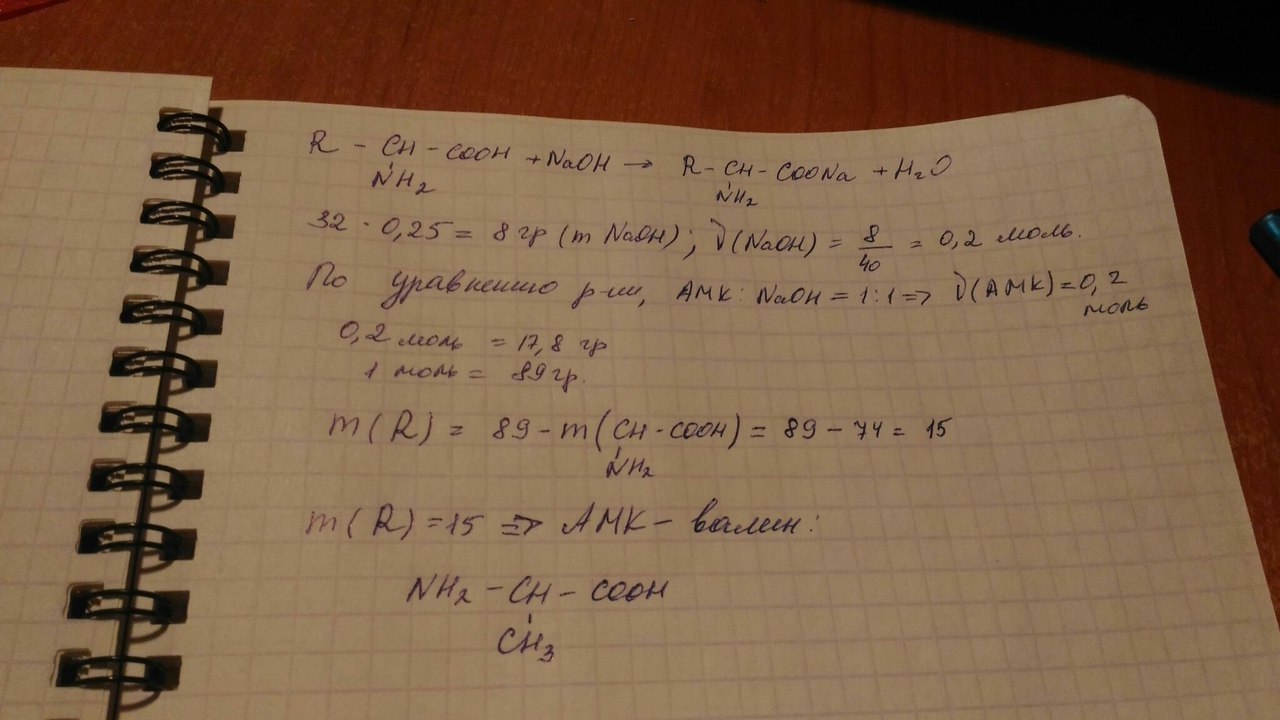 R - CH - COOH + NaOH → R - CH - COONa + H₂O
NH₂ NH₂
32 · 0,25 = 8 гр (m NaOH); ν(NaOH) = 8/40 = 0,2 моль.
По уравнению р-ии, АМК : NaOH = 1:1 => ν(АМК) = 0,2 моль
0,2 моль = 17,8 гр
1 моль = 89 гр.
m(R) = 89 - m(CH - COOH) = 89 - 74 = 15
NH₂
m(R) = 15 => АМК - валин:
NH₂ - CH - COOH
CH₃